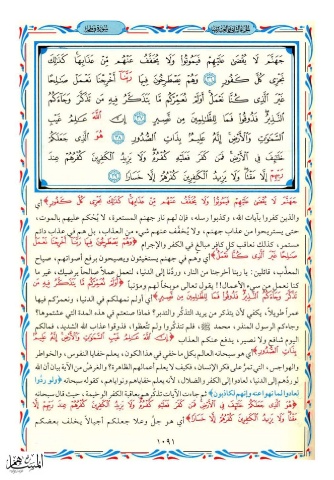 الجزء الثاني والعشرون
سورة فاطر
جَهَنَّمَ لَا يُقْضَىٰ عَلَيْهِمْ فَيَمُوتُوا وَلَا يُخَفَّفُ عَنْهُم مِّنْ عَذَابِهَا كَذَٰلِكَ
نَجْزِي كُلَّ كَفُورٍ ٣٦ وَهُمْ يَصْطَرِخُونَ فِيهَا رَبَّنَا أَخْرِجْنَا نَعْمَلْ صَٰلِحًا
غَيْرَ الَّذِي كُنَّا نَعْمَلُ أَوَلَمْ نُعَمِّرْكُم مَّا يَتَذَكَّرُ فِيهِ مَن تَذَكَّرَ وَجَاءَكُمُ
النَّذِيرُ فَذُوقُوا فَمَا لِلظَّٰلِمِينَ مِن نَّصِيرٍ ٣٧ إِنَّ اللَّهَ عَٰلِمُ غَيْبِ
السَّمَٰوَٰتِ وَالْأَرْضِ إِنَّهُ عَلِيمٌ بِذَاتِ الصُّدُورِ ٣٨ هُوَ الَّذِي جَعَلَكُمْ
خَلَٰئِفَ فِي الْأَرْضِ فَمَن كَفَرَ فَعَلَيْهِ كُفْرُهُ وَلَا يَزِيدُ الْكَٰفِرِينَ كُفْرُهُمْ عِندَ
رَبِّهِمْ إِلَّا مَقْتًا وَلَا يَزِيدُ الْكَٰفِرِينَ كُفْرُهُمْ إِلَّا خَسَارًا ٣٩
جَهَنَّمَ لَا يُقْضَىٰ عَلَيْهِمْ فَيَمُوتُوا وَلَا يُخَفَّفُ عَنْهُم مِّنْ عَذَابِهَا كَذَٰلِكَ نَجْزِي كُلَّ كَفُورٍ﴾ أي
والذين كفروا بآيات الله، وكذبوا رسله، فإن لهم نار جهنم المستعرة، لا يُحكم عليهم بالموت،
حتى يستريحوا من عذاب جهنم، ولا يُخفَّف عنهم شيء من العذاب، بل هم في عذاب دائم
مستمر، كذلك نعاقب كل كافر مبالغ في الكفر والإجرام ﴿وَهُمْ يَصْطَرِخُونَ فِيهَا رَبَّنَا أَخْرِجْنَا نَعْمَلْ
صَٰلِحًا غَيْرَ الَّذِي كُنَّا نَعْمَلُ﴾ أي وهم في جهنم يستغيثون ويصيحون برفع أصواتهم، صياح
المعذَّب، قائلين: يا ربنا أخرجنا من النار، وردَّنا إلى الدنيا، لنعمل عملاً صالحاً يرضيك، غير ما
كنا نعمل من سيء الأعمال!! يقول تعالى موبخاً لهم ومؤنباً ﴿أَوَلَمْ نُعَمِّرْكُم مَّا يَتَذَكَّرُ فِيهِ مَن
تَذَكَّرَ وَجَاءَكُمُ النَّذِيرُ فَذُوقُوا فَمَا لِلظَّٰلِمِينَ مِن نَّصِيرٍ﴾ أي أولم نمهلكم في الدنيا، ونعمركم فيها
عمراً طويلاً، يكفي لأن يتذكر من يريد التذكر والتدبر؟ فماذا صنعتم في هذه المدة التي عشتموها؟
وجاءكم الرسول المنذر، محمد ﷺ، فلم تتذكروا ولم تتعظوا، فذوقوا عذاب الله الشديد، فمالكم
اليوم شافع ولا نصير، يدفع عنكم العذاب ﴿إِنَّ اللَّهَ عَٰلِمُ غَيْبِ السَّمَٰوَٰتِ وَالْأَرْضِ إِنَّهُ عَلِيمٌ
بِذَاتِ الصُّدُورِ﴾ أي هو سبحانه العالم بكل ما خفي في هذا الكون، يعلم خفايا النفوس، والخواطر
والهواجس، التي تمرُّ على فكر الإنسان، فكيف لا يعلم أعمالهم الظاهرة؟ والغرض من الآية بيان أن الله
لو ردهم إلى الدنيا، لعادوا إلى الكفر والضلال، لأنه يعلم خفاياهم ونواياهم، كقوله سبحانه ﴿ولو ردوا
لعادوا لما نهوا عنه وإنهم لكاذبون﴾ ثم جاءت الآيات تذكرهم بعاقبة الكفر الوخيمة، حيث قال سبحانه
﴿هُوَ الَّذِي جَعَلَكُمْ خَلَٰئِفَ فِي الْأَرْضِ فَمَن كَفَرَ فَعَلَيْهِ كُفْرُهُ وَلَا يَزِيدُ الْكَٰفِرِينَ كُفْرُهُمْ عِندَ رَبِّهِمْ إِلَّا
مَقْتًا وَلَا يَزِيدُ الْكَٰفِرِينَ كُفْرُهُمْ إِلَّا خَسَارًا﴾ أي هو جلَّ وعلا جعلكم أجيالاً يخلف بعضكم
١٠٩١